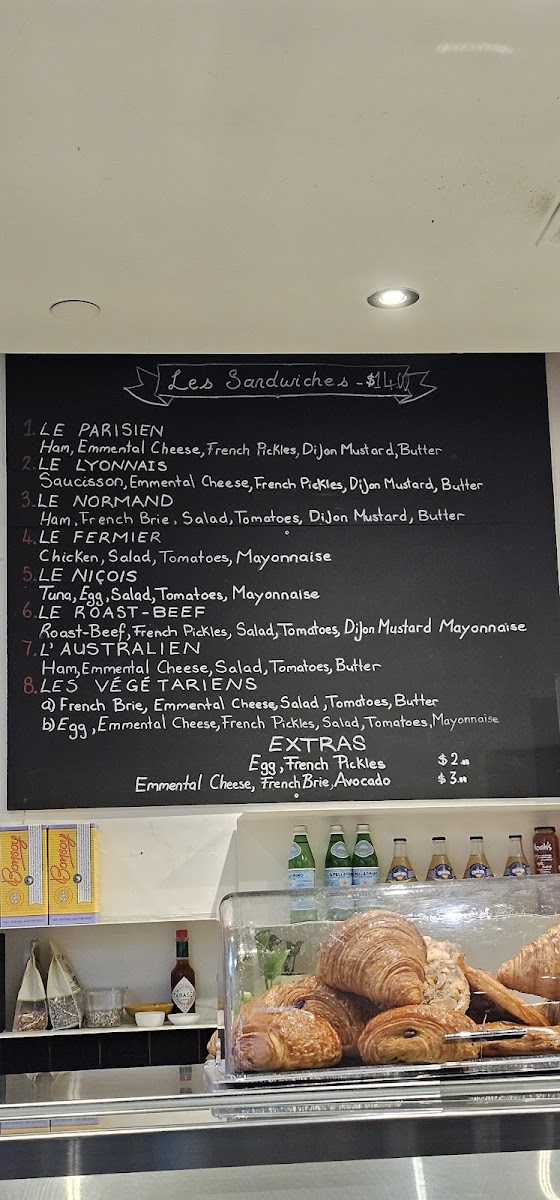 Les Sandwiches - $14.00
1. LE PARISIEN
Ham, Emmental Cheese, French Pickles, Dijon Mustard, Butter
2. LE LYONNAIS
Saucisson, Emmental Cheese, French Pickles, Dijon Mustard, Butter
3. LE NORMAND
Ham, French Brie, Salad, Tomatoes, Dijon Mustard, Butter
4. LE FERMIER
Chicken, Salad, Tomatoes, Mayonnaise
5. LE NIÇOIS
Tuna, Egg, Salad, Tomatoes, Mayonnaise
6. LE ROAST-BEEF
Roast-Beef, French Pickles, Salad, Tomatoes, Dijon Mustard Mayonnaise
7. L'AUSTRALIEN
Ham, Emmental Cheese, Salad, Tomatoes, Butter
8. LES VÉGÉTARIENS
a) French Brie, Emmental Cheese, Salad, Tomatoes, Butter
b) Egg, Emmental Cheese, French Pickles, Salad, Tomatoes, Mayonnaise
EXTRAS
Egg, French Pickles $2.00
Emmental Cheese, French Brie, Avocado $3.00
Bonsoy
Bonsoy
TABASCO